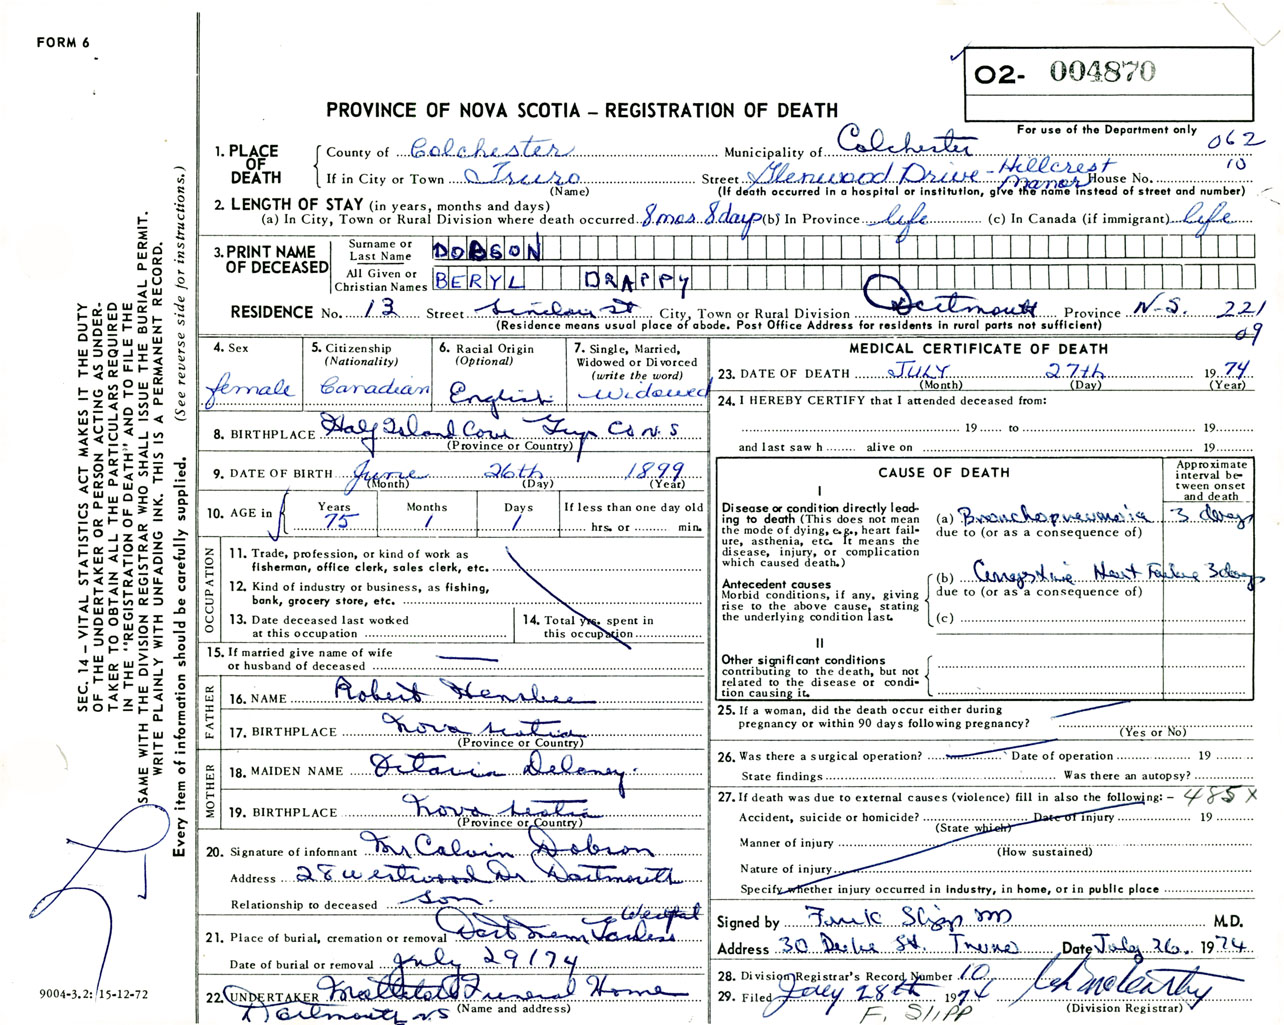 FORM 6
O2- 004870
PROVINCE OF NOVA SCOTIA – REGISTRATION OF DEATH
For use of the Department only
062
10
1. PLACE OF DEATH
County of Colchester Municipality of Colchester
If in City or Town Truro Street Glenwood Drive - Hillcrest Manor House No.
(Name) (If death occurred in a hospital or institution, give the name instead of street and number)
2. LENGTH OF STAY (in years, months and days)
(a) In City, Town or Rural Division where death occurred 8 mos 8 days (b) In Province life (c) In Canada (if immigrant) life
3. PRINT NAME OF DECEASED
Surname or Last Name DOBSON
All Given or Christian Names BERYL DRAPPY
RESIDENCE No. 13 Street Sinclair St City, Town or Rural Division Dartmouth Province N-S. 221
(Residence means usual place of abode. Post Office Address for residents in rural parts not sufficient)
09
4. Sex
female
5. Citizenship
(Nationality)
Canadian
6. Racial Origin
(Optional)
English
7. Single, Married,
Widowed or Divorced
(write the word)
Widowed
8. BIRTHPLACE Half Island Cove Guys Co N.S
(Province or Country)
9. DATE OF BIRTH June 26th 1899
(Month) (Day) (Year)
10. AGE in
Years Months Days If less than one day old
75 1 1 hrs. or min.
OCCUPATION
11. Trade, profession, or kind of work as
fisherman, office clerk, sales clerk, etc.
12. Kind of industry or business, as fishing,
bank, grocery store, etc.
13. Date deceased last worked
at this occupation
14. Total yrs. spent in
this occupation
15. If married give name of wife
or husband of deceased
FATHER
16. NAME Robert
17. BIRTHPLACE Nova Scotia
(Province or Country)
MOTHER
18. MAIDEN NAME Octavia Delaney
19. BIRTHPLACE Nova Scotia
(Province or Country)
20. Signature of informant Mr Calvin Dobson
Address 28 Westwood Dr Dartmouth
Relationship to deceased Son
21. Place of burial, cremation or removal Dart Mem Gardens Westphal
Date of burial or removal July 29/74
22. UNDERTAKER Funeral Home
Dartmouth NS (Name and address)
MEDICAL CERTIFICATE OF DEATH
23. DATE OF DEATH JULY 27th 1974
(Month) (Day) (Year)
24. I HEREBY CERTIFY that I attended deceased from:
19 to 19
and last saw h alive on 19
CAUSE OF DEATH
Approximate interval between onset and death
I
Disease or condition directly lead-
ing to death (This does not mean
the mode of dying, e.g., heart fail-
ure, asthenia, etc. It means the
disease, injury, or complication
which caused death.)
(a) Bronchopneumonia 3 days
due to (or as a consequence of)
Antecedent causes
Morbid conditions, if any, giving
rise to the above cause, stating
the underlying condition last.
(b) Congestive Heart Failure 3 days
due to (or as a consequence of)
(c)
II
Other significant conditions
contributing to the death, but not
related to the disease or condi-
tion causing it.
25. If a woman, did the death occur either during
pregnancy or within 90 days following pregnancy?
(Yes or No)
26. Was there a surgical operation? Date of operation 19
State findings Was there an autopsy?
27. If death was due to external causes (violence) fill in also the following: – 485X
Accident, suicide or homicide? Date of injury 19
(State which)
Manner of injury
(How sustained)
Nature of injury
Specify whether injury occurred in industry, in home, or in public place
Signed by Frank Slipp MD M.D.
Address 30 St. Truro Date July 26. 1974
28. Division Registrar's Record Number 10
29. Filed July 28th 1974
(Division Registrar)
F. Slipp
SEC. 14 – VITAL STATISTICS ACT MAKES IT THE DUTY
OF THE UNDERTAKER OR PERSON ACTING AS UNDER-
TAKER TO OBTAIN ALL THE PARTICULARS REQUIRED
IN THE "REGISTRATION OF DEATH" AND TO FILE THE
SAME WITH THE DIVISION REGISTRAR WHO SHALL ISSUE THE BURIAL PERMIT.
WRITE PLAINLY WITH UNFADING INK. THIS IS A PERMANENT RECORD.
Every item of information should be carefully supplied. (See reverse side for instructions.)
9004-3.2: 15-12-72